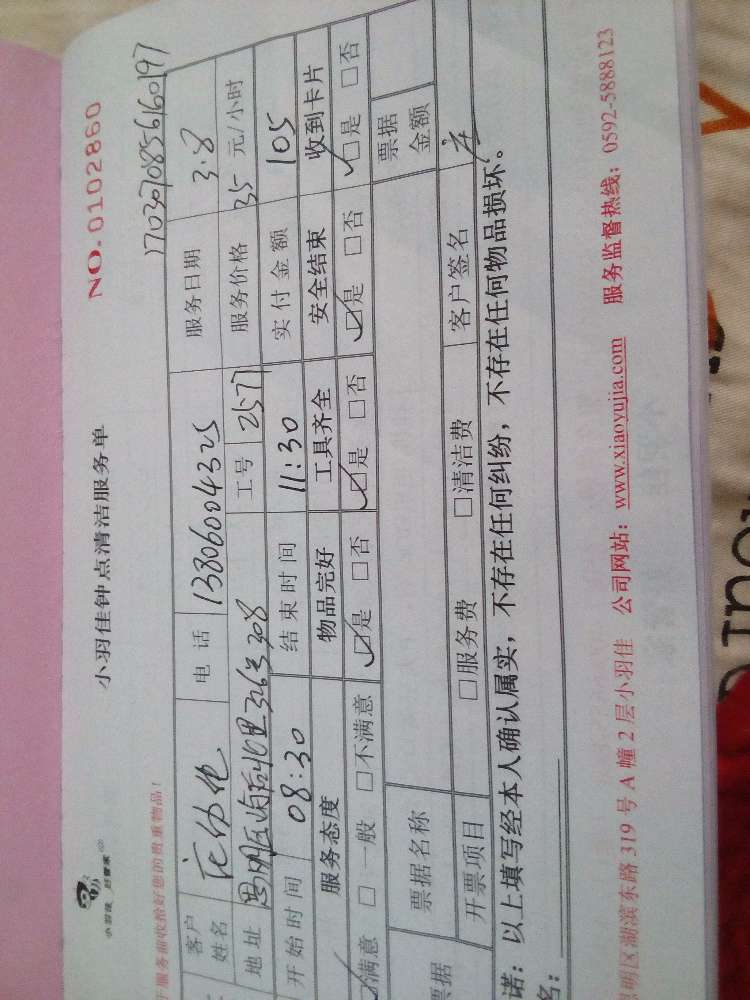 小羽佳 好管家
小羽佳钟点清洁服务单
NO.0102860
服务前收拾好您的贵重物品！
1703070856160197
客户姓名
电话 13806004325 服务日期 3.8
地址 思明区 326号308 工号 2577 服务价格 35 元/小时
开始时间 08:30 结束时间 11:30 实付金额 105
服务态度 物品完好 工具齐全 安全结束 收到卡片
☑满意 □一般 □不满意 ☑是 □否 ☑是 □否 ☑是 □否 ☑是 □否
票据 票据名称 票据金额
开票项目 □服务费 □清洁费 客户签名
诺：以上填写经本人确认属实，不存在任何纠纷，不存在任何物品损坏。
名：
明区湖滨东路 319 号 A 幢 2 层小羽佳 公司网站：www.xiaoyujia.com 服务监督热线：0592-5888123